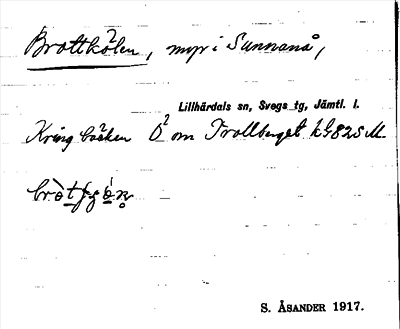 Brattkölen, myr i Sunnanå,
Lillhärdals sn, Svegs tg, Jämtl. l.
Kring bäcken Ö² om Trollberget kg 825 M.
S. ÅSANDER 1917.